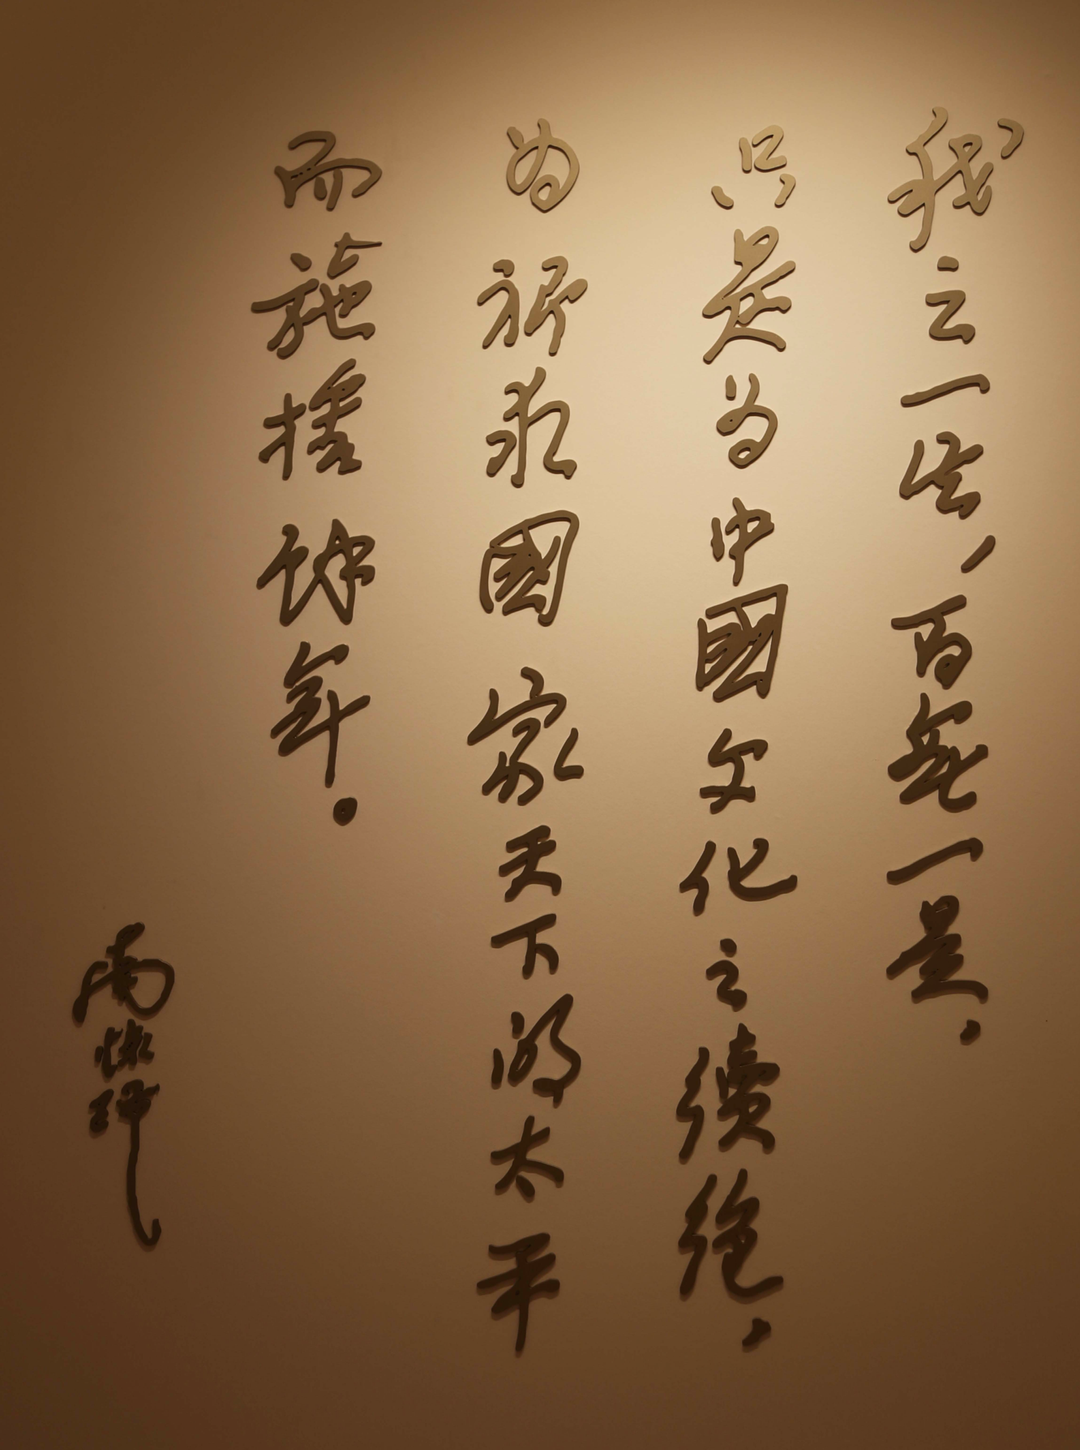 我之一生，百無一是，
只是为中國文化之續絕，
为祈求國家天下的太平
而施捨餘年。
南懷瑾